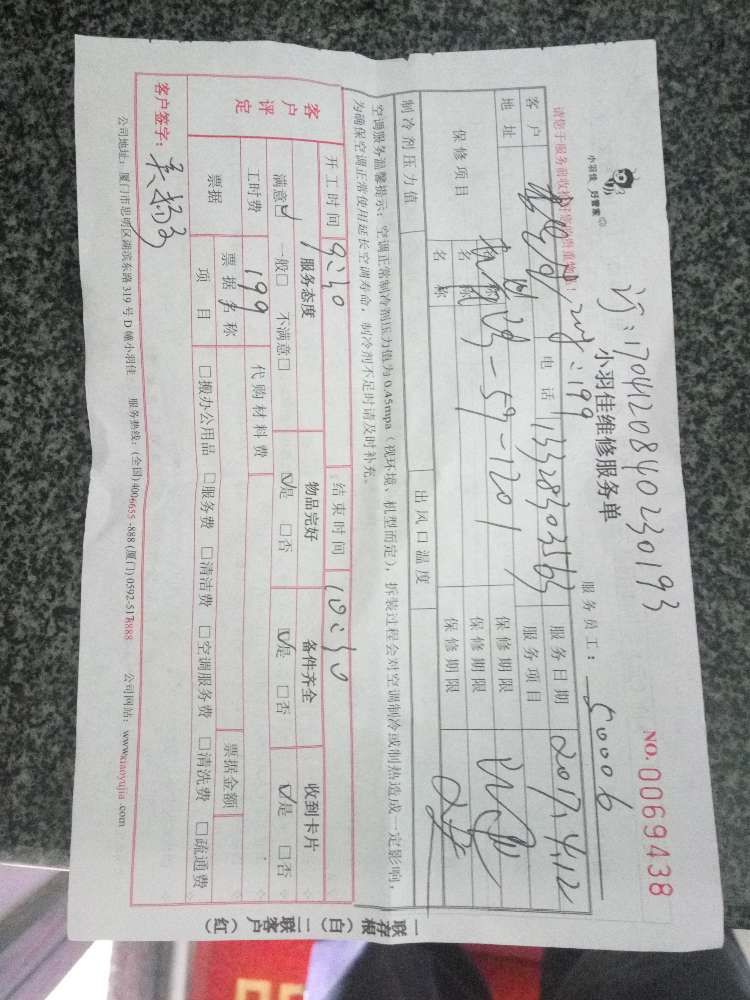 订:17041208402230193
小羽佳 好管家
小羽佳维修服务单
NO. 0069438
服务员工: 50006
请您于服务前收检好您的贵重物品!
:199
客户
电话 13328303563
服务日期 2017.4.12
地址
-59-1201
服务项目
保修项目
名称
保修期限
名称
保修期限
保修期限
制冷剂压力值
出风口温度
空调服务温馨提示:空调正常制冷剂压力值为0.45mpa(视环境、机型而定),拆装过程会对空调制冷或制热造成一定影响,
为确保空调正常使用延长空调寿命,制冷剂不足时请及时补充。
开工时间 9:30
结束时间 10:30
客户评定
服务态度 物品完好 备件齐全 收到卡片
满意☑ 一般□ 不满意□ ☑是 □否 ☑是 □否 ☑是 □否
工时费 199 代购材料费
票据 票据名称 票据金额
项目 □搬办公用品 □服务费 □清洁费 □空调服务费 □清洗费 □疏通费
客户签字:
公司地址:厦门市思明区湖滨东路319号D幢小羽佳 服务热线:(全国)4006655-888 (厦门)0592-5178888 公司网站:www.xiaoyujia.com
一联存根(白)二联客户(红)